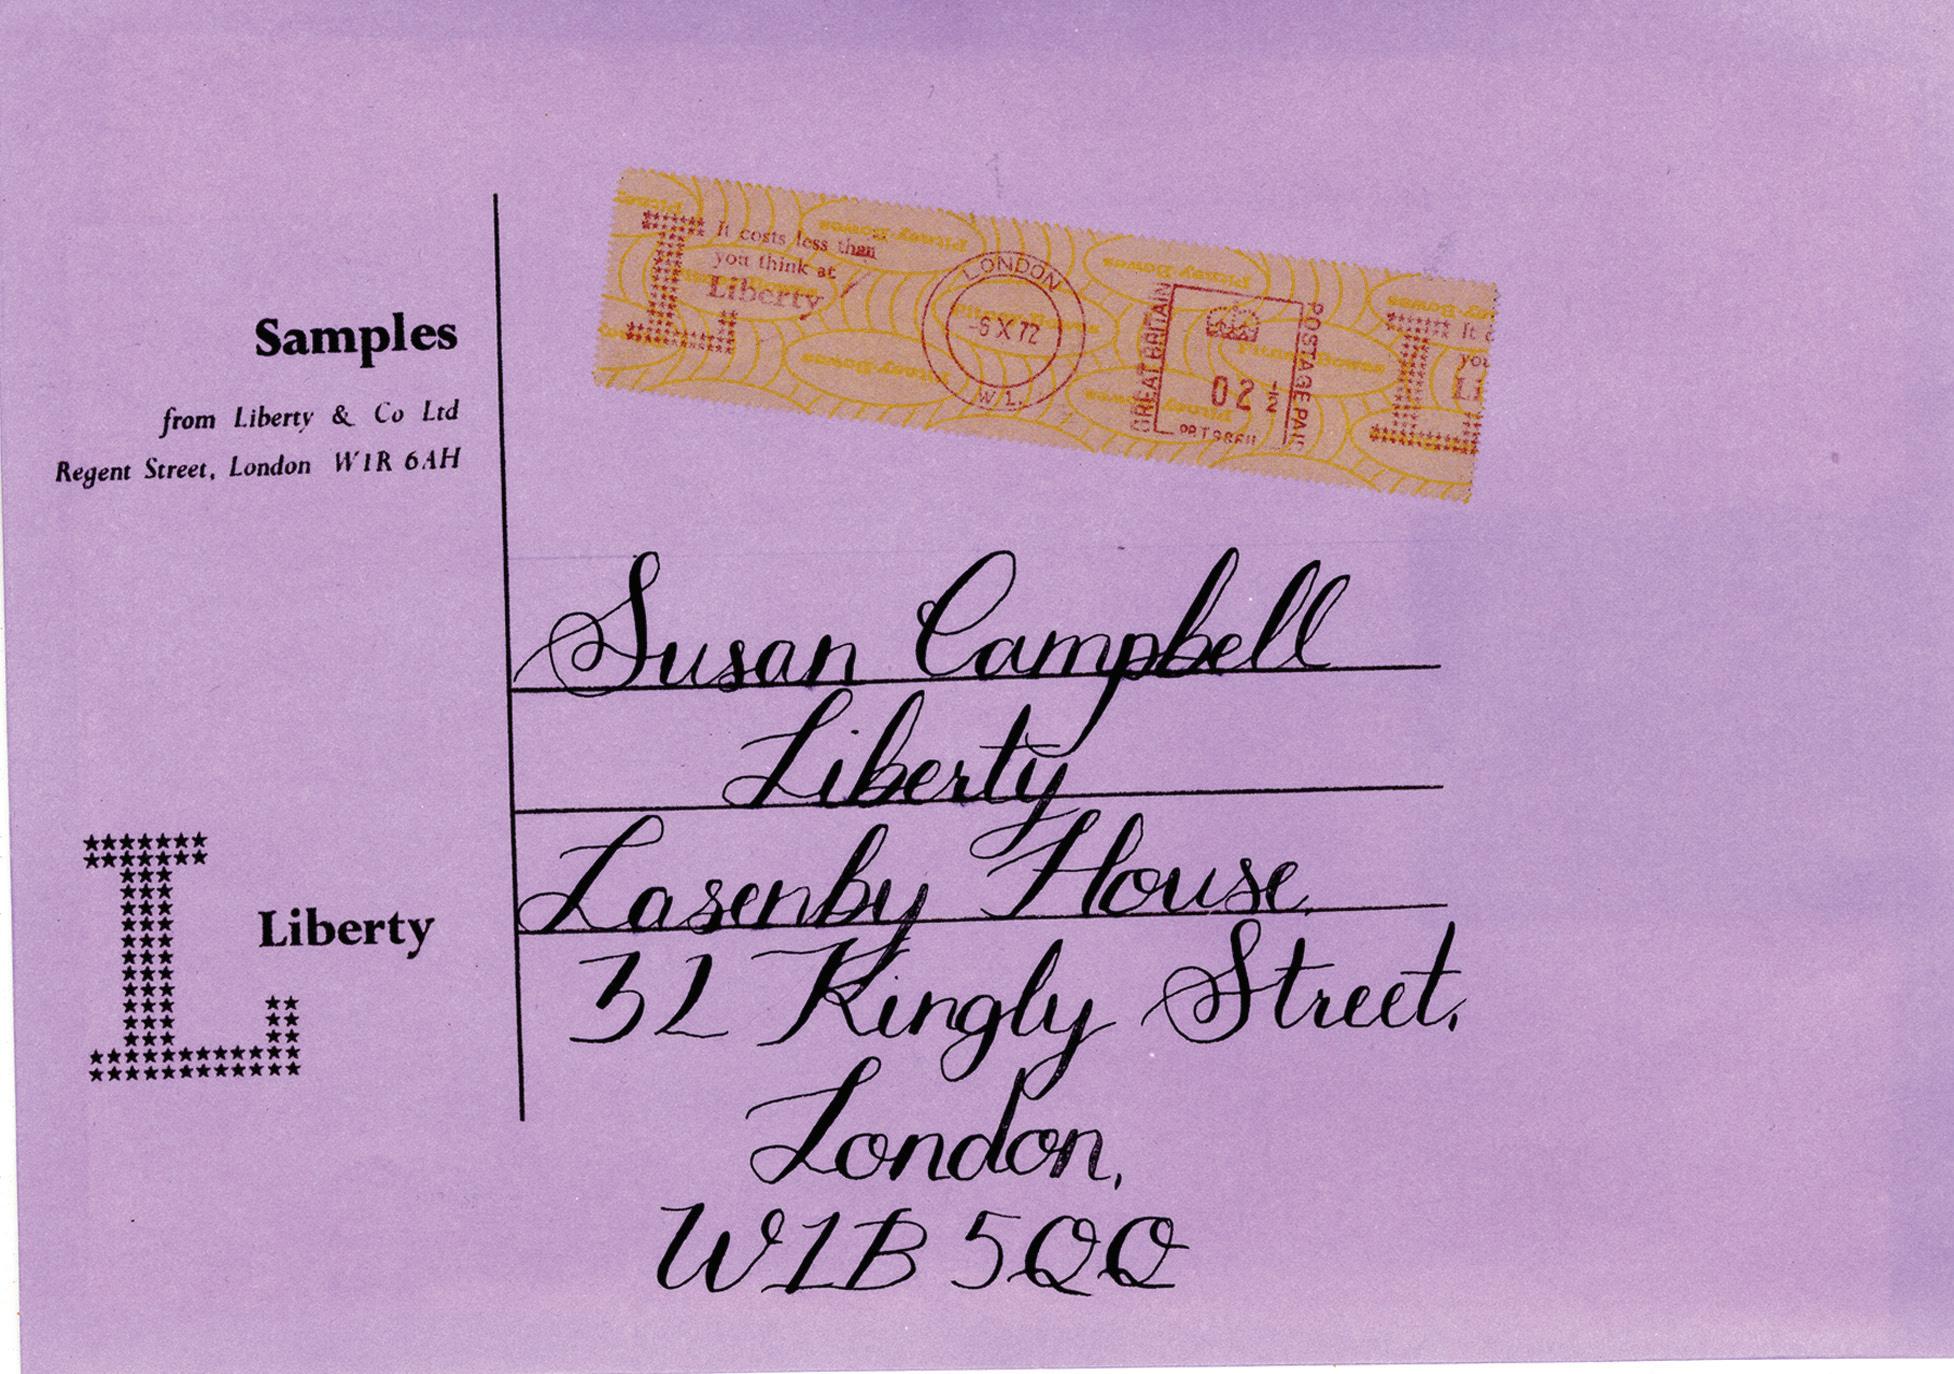 Samples
from Liberty & Co Ltd
Regent Street, London W1R 6AH
Liberty
It costs less than
you think at
Liberty
LONDON
-6 X 72
W1.
GREAT BRITAIN
02 ½
POSTAGE PAID
It c
you
Li
Pitney-Bowes
Susan Campbell
Liberty
Lasenby House,
32 Kingly Street,
London,
W1B 5QQ